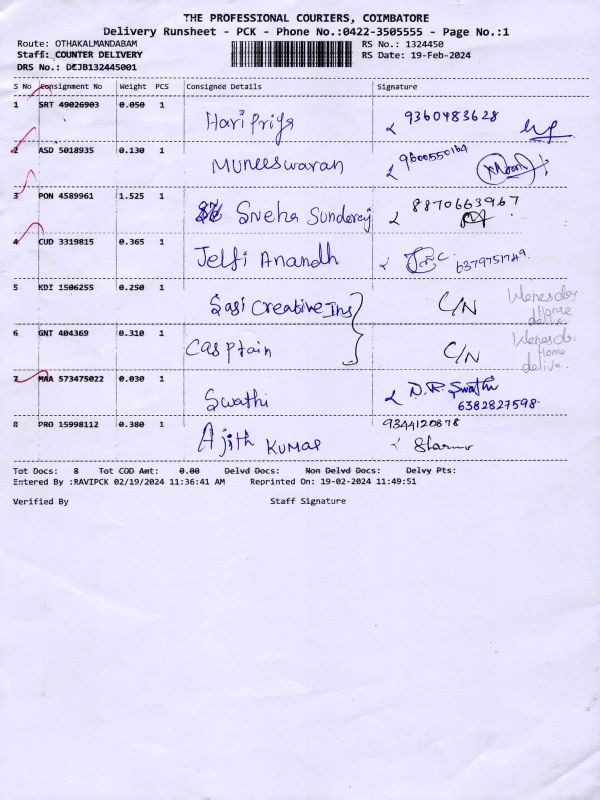 THE PROFESSIONAL COURIERS, COIMBATORE
Delivery Runsheet - PCK - Phone No.:0422-3505555 - Page No.:1
Route: OTHAKALMANDABAM RS No.: 1324450
Staff: COUNTER DELIVERY RS Date: 19-Feb-2024
DRS No.: DEJB132445001
S No Consignment No Weight PCS Consignee Details Signature
1 SRT 49026903 0.050 1 Haripriya 9360483628
2 ASD 5018935 0.130 1 Muneeswaran 9600550164
3 PON 4589961 1.525 1 Sneha Sunderaj 8870663967
4 CUD 3319815 0.365 1 Jelfi Anandh 6379751749
5 KDI 1506255 0.250 1 Sasi Creative Ins C/N Wenesday Home delive
6 GNT 404369 0.310 1 Casptain C/N Wenesda. Home delive.
7 MAA 573475022 0.030 1 Swathi D.R. Swathi
6382827598
8 PRO 15998112 0.380 1 Ajith Kumar 9344120878
Tot Docs: 8 Tot COD Amt: 0.00 Delvd Docs: Non Delvd Docs: Delvy Pts:
Entered By :RAVIPCK 02/19/2024 11:36:41 AM Reprinted On: 19-02-2024 11:49:51
Verified By Staff Signature